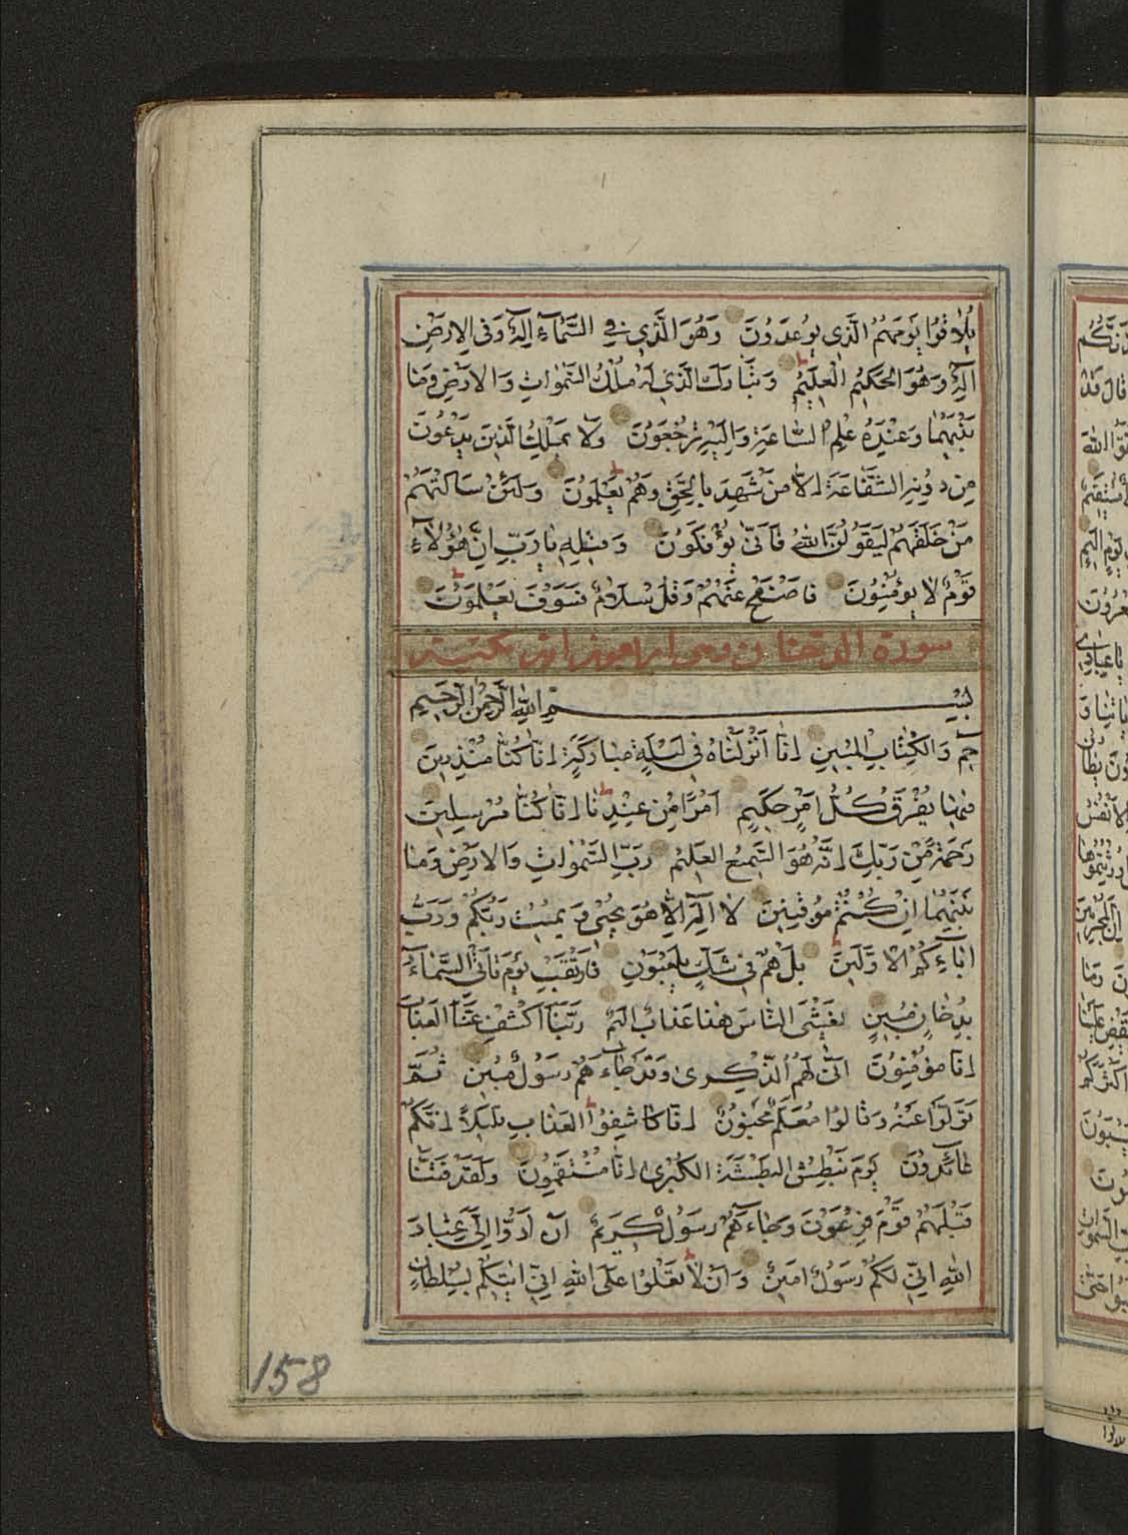 يُلَاقُوا يَوْمَهُمُ الَّذِي يُوعَدُونَ وَهُوَ الَّذِي فِي السَّمَاءِ إِلَهٌ وَفِي الْأَرْضِ
إِلَهٌ وَهُوَ الْحَكِيمُ الْعَلِيمُ وَتَبَارَكَ الَّذِي لَهُ مُلْكُ السَّمٰوَاتِ وَالْأَرْضِ وَمَا
بَيْنَهُمَا وَعِنْدَهُ عِلْمُ السَّاعَةِ وَإِلَيْهِ تُرْجَعُونَ وَلَا يَمْلِكُ الَّذِينَ يَدْعُونَ
مِنْ دُونِهِ الشَّفَاعَةَ إِلَّا مَنْ شَهِدَ بِالْحَقِّ وَهُمْ يَعْلَمُونَ وَلَئِنْ سَأَلْتَهُمْ
مَنْ خَلَقَهُمْ لَيَقُولُنَّ اللّٰهُ فَأَنَّى يُؤْفَكُونَ وَقِيلِهِ يَا رَبِّ إِنَّ هٰؤُلَاءِ
قَوْمٌ لَا يُؤْمِنُونَ فَاصْفَحْ عَنْهُمْ وَقُلْ سَلَامٌ فَسَوْفَ يَعْلَمُونَ
سورة الدخان
بِسْمِ اللّٰهِ الرَّحْمٰنِ الرَّحِيمِ
حٰم وَالْكِتَابِ الْمُبِينِ إِنَّا أَنْزَلْنَاهُ فِي لَيْلَةٍ مُبَارَكَةٍ إِنَّا كُنَّا مُنْذِرِينَ
فِيهَا يُفْرَقُ كُلُّ أَمْرٍ حَكِيمٍ أَمْرًا مِنْ عِنْدِنَا إِنَّا كُنَّا مُرْسِلِينَ
رَحْمَةً مِنْ رَبِّكَ إِنَّهُ هُوَ السَّمِيعُ الْعَلِيمُ رَبِّ السَّمٰوَاتِ وَالْأَرْضِ وَمَا
بَيْنَهُمَا إِنْ كُنْتُمْ مُوقِنِينَ لَا إِلٰهَ إِلَّا هُوَ يُحْيِي وَيُمِيتُ رَبُّكُمْ وَرَبُّ
آبَائِكُمُ الْأَوَّلِينَ بَلْ هُمْ فِي شَكٍّ يَلْعَبُونَ فَارْتَقِبْ يَوْمَ تَأْتِي السَّمَاءُ
بِدُخَانٍ مُبِينٍ يَغْشَى النَّاسَ هٰذَا عَذَابٌ أَلِيمٌ رَبَّنَا اكْشِفْ عَنَّا الْعَذَابَ
إِنَّا مُؤْمِنُونَ أَنَّى لَهُمُ الذِّكْرَى وَقَدْ جَاءَهُمْ رَسُولٌ مُبِينٌ ثُمَّ
تَوَلَّوْا عَنْهُ وَقَالُوا مُعَلَّمٌ مَجْنُونٌ إِنَّا كَاشِفُوا الْعَذَابِ قَلِيلًا إِنَّكُمْ
عَائِدُونَ يَوْمَ نَبْطِشُ الْبَطْشَةَ الْكُبْرَى إِنَّا مُنْتَقِمُونَ وَلَقَدْ فَتَنَّا
قَبْلَهُمْ قَوْمَ فِرْعَوْنَ وَجَاءَهُمْ رَسُولٌ كَرِيمٌ أَنْ أَدُّوا إِلَيَّ عِبَادَ
اللّٰهِ إِنِّي لَكُمْ رَسُولٌ أَمِينٌ وَأَنْ لَا تَعْلُوا عَلَى اللّٰهِ إِنِّي آتِيكُمْ بِسُلْطَانٍ
158